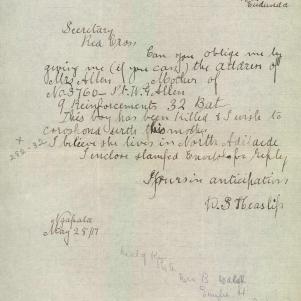 Eudunda
Secretary
Red Cross
Can you oblige me by
giving me (if you can) the address of
Mrs Allen Mother of
No 3760 - Pt. W. G. Allen
9 Reinforcements 32 Bat
This boy has been killed & I wish to
corospond with his mother
I believe she lives in North Adelaide
I enclose stamped Envelop for Reply
Yours in anticipation
R. S. Heaslip
Ngapala
May 25/17
x
232-32
Mrs B. Walsh